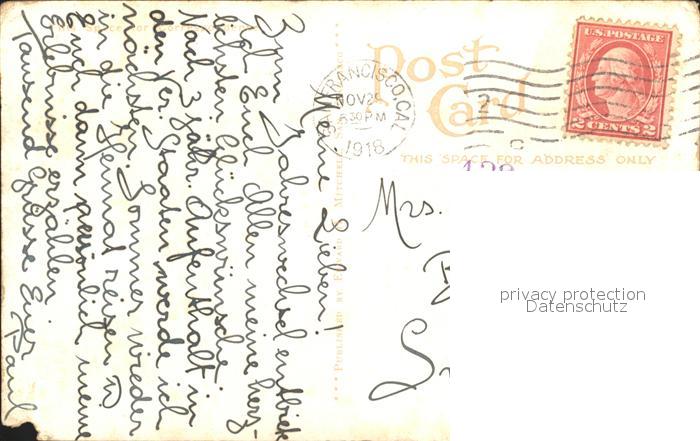 Post
Card
THIS SPACE FOR ADDRESS ONLY
FRANCISCO, CAL
NOV 29
630 PM
1918
2
U.S. POSTAGE
2 CENTS 2
Mrs.
privacy protection
Datenschutz
PUBLISHED BY EDWARD H. MITCHELL, SAN
Meine Lieben!
Zum Jahreswechsel entbiete
ich Euch Allen meine herz-
lichsten Glückwünsche.
Nach 3 jähr. Aufenthalt in
den Ver. Staaten werde ich
nächsten Sommer wieder
in die Heimat reisen u
Euch dann persönlich meine
Erlebnisse erzählen
Tausend Grüsse Euer
Paul